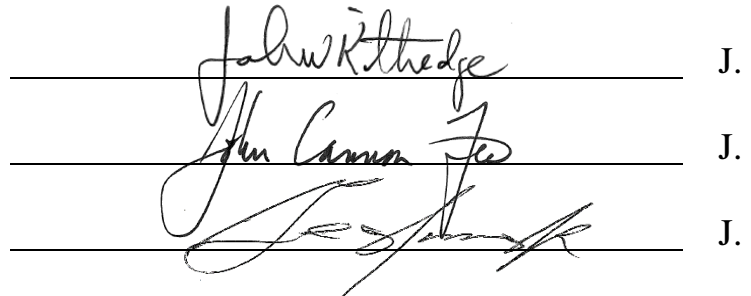 John Kittredge J.
John Cannon Few J.
J.